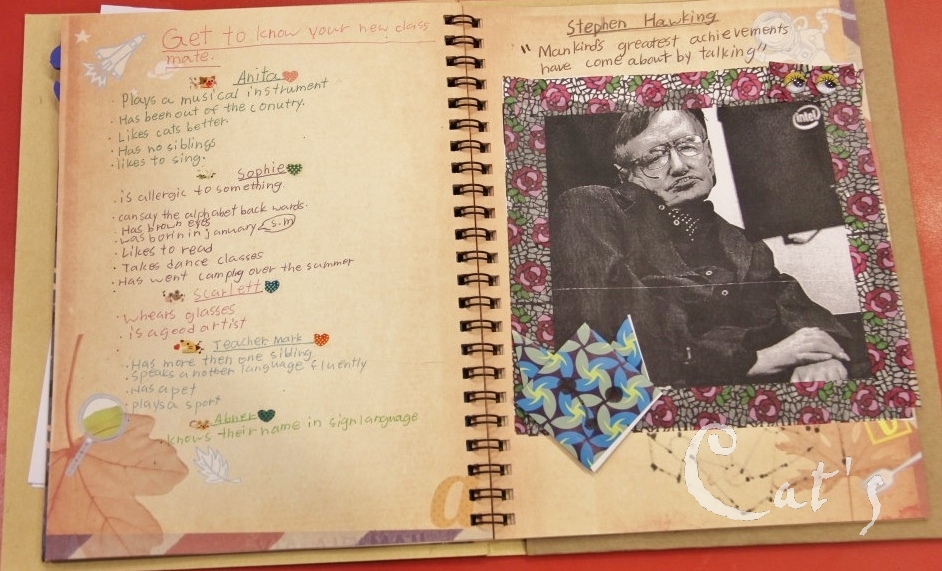 Get to know your new class
mate.
Anita
· Plays a musical instrument
· Has been out of the conutry.
· Likes cats better
· Has no siblings
· likes to sing.
Sophie
· is allergic to something.
· cansay the alphabet back wards.
· Has brown eyes
· was born in january S.M
· Likes to read
· Takes dance classes
· Has went campihg over the summer
Scarlett
· whears glasses
· is a good artist
Teacher Mark
· Has more then one sibling
· Speaks another language fluently
· Has a pet
· plays a sport
Abner
knows their name in sign language
Stephen Hawking
"Mankind's greatest achievements
have come about by talking"
intel
Cat's